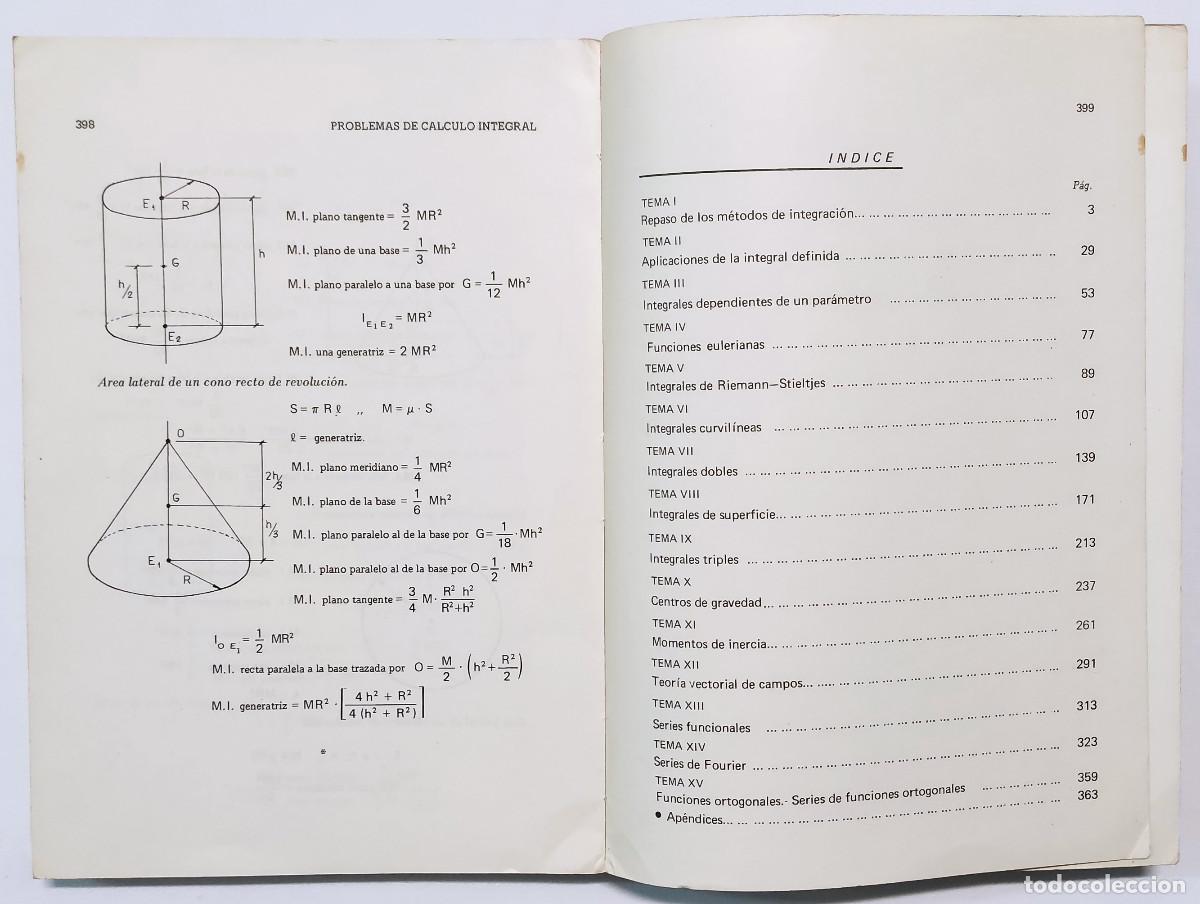 398
PROBLEMAS DE CALCULO INTEGRAL
E₁
R
G
h
h/2
E₂
M.I. plano tangente = 3/2 MR²
M.I. plano de una base = 1/3 Mh²
M.I. plano paralelo a una base por G = 1/12 Mh²
I E₁ E₂ = MR²
M.I. una generatriz = 2 MR²
Area lateral de un cono recto de revolución.
S = π R ℓ ,, M = μ · S
ℓ = generatriz.
O
2h/3
G
h/3
E₁
R
M.I. plano meridiano = 1/4 MR²
M.I. plano de la base = 1/6 Mh²
M.I. plano paralelo al de la base por G = 1/18 · Mh²
M.I. plano paralelo al de la base por O = 1/2 · Mh²
M.I. plano tangente = 3/4 M · R² h² / R²+h²
I O E₁ = 1/2 MR²
M.I. recta paralela a la base trazada por O = M/2 · (h² + R²/2)
M.I. generatriz = MR² · [4 h² + R² / 4 (h² + R²)]
*
399
INDICE
Pág.
TEMA I
Repaso de los métodos de integración... ... ... ... ... ... ... ... ... ... ... ... ... 3
TEMA II
Aplicaciones de la integral definida ... ... ... ... ... ... ... ... ... ... ... ... ... .. 29
TEMA III
Integrales dependientes de un parámetro ... ... ... ... ... ... ... ... ... ... ... 53
TEMA IV
Funciones eulerianas ... ... ... ... ... ... ... ... ... ... ... ... ... ... ... ... ... ... ... 77
TEMA V
Integrales de Riemann—Stieltjes ... ... ... ... ... ... ... ... ... ... ... ... ... ... .. 89
TEMA VI
Integrales curvilíneas ... ... ... ... ... ... ... ... ... ... ... ... ... ... ... ... ... ... ... 107
TEMA VII
Integrales dobles ... ... ... ... ... ... ... ... ... ... ... ... ... ... ... ... ... ... ... ... ... 139
TEMA VIII
Integrales de superficie... ... ... ... ... ... ... ... ... ... ... ... ... ... ... ... ... ... ... 171
TEMA IX
Integrales triples ... ... ... ... ... ... ... ... ... ... ... ... ... ... ... ... ... ... ... ... ... 213
TEMA X
Centros de gravedad... ... ... ... ... ... ... ... ... ... ... ... ... ... ... ... ... ... ... ... 237
TEMA XI
Momentos de inercia... ... ... ... ... ... ... ... ... ... ... ... ... ... ... ... ... ... ... ... 261
TEMA XII
Teoría vectorial de campos... ... ... ... ... ... ... ... ... ... ... ... ... ... ... ... ... ... 291
TEMA XIII
Series funcionales ... ... ... ... ... ... ... ... ... ... ... ... ... ... ... ... ... ... ... ... 313
TEMA XIV
Series de Fourier ... ... ... ... ... ... ... ... ... ... ... ... ... ... ... ... ... ... ... ... ... 323
TEMA XV
Funciones ortogonales.- Series de funciones ortogonales ... ... ... ... ... 359
• Apéndices... ... ... ... ... ... ... ... ... ... ... ... ... ... ... ... ... ... ... ... ... .. ... 363
todocoleccion